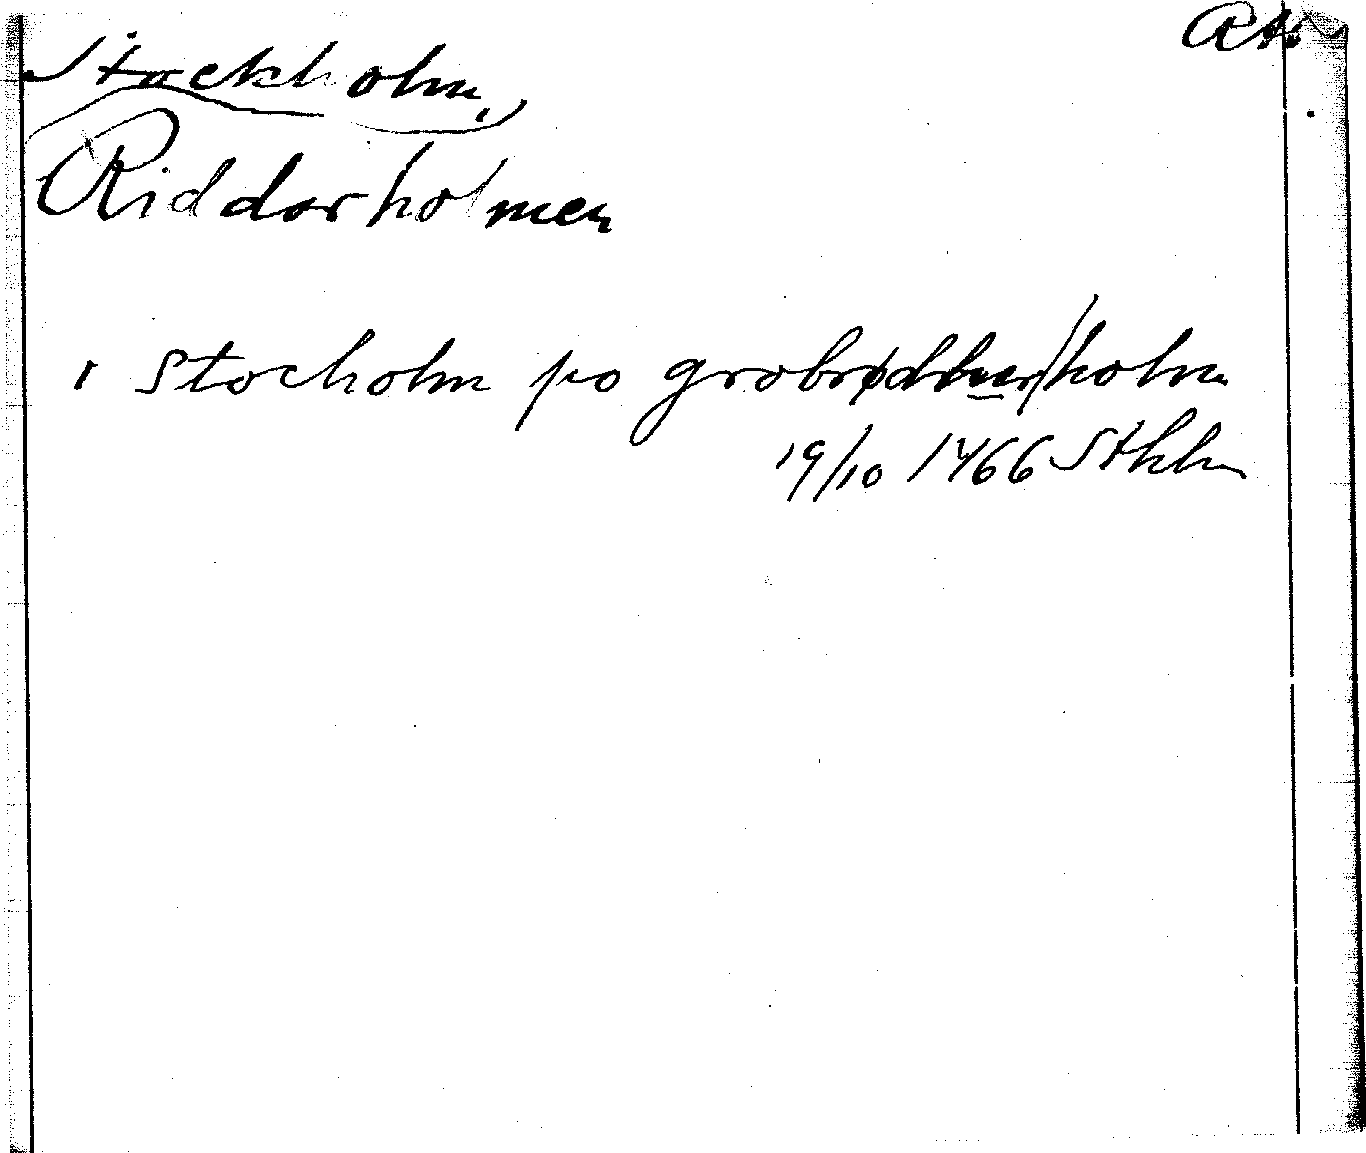 Rt.
Stockholm,
Riddarholmen
i Stocholm po grobrødher/holm
19/10 1466 Sthlm